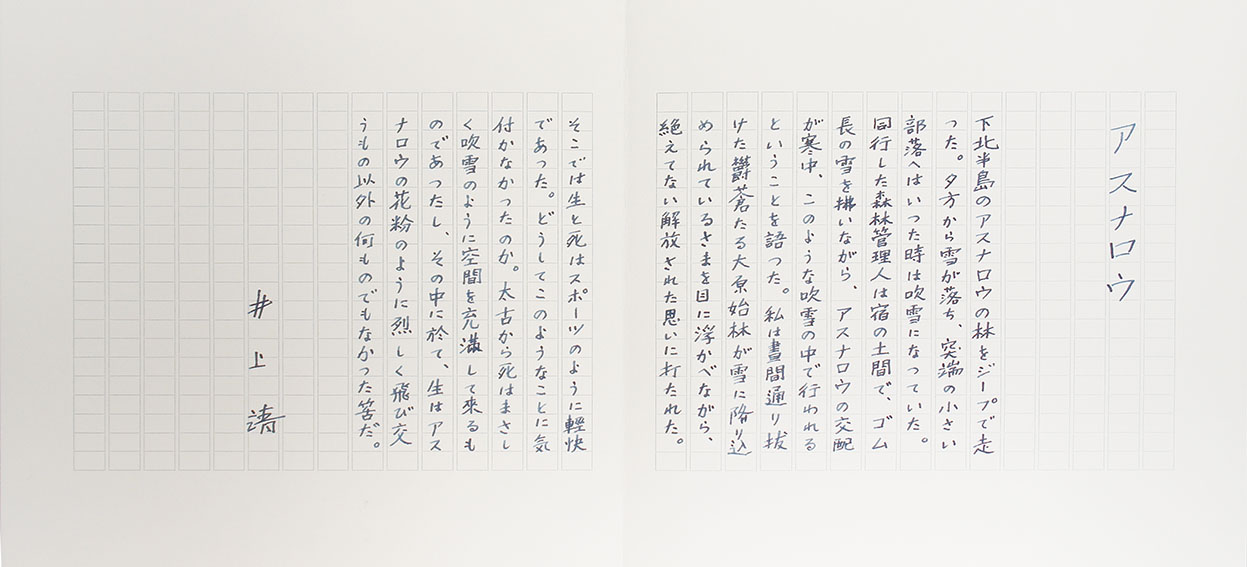 アスナロウ
下北半島のアスナロウの林をジープで走
った。夕方から雪が落ち、突端の小さい
部落へはいった時は吹雪になっていた。
同行した森林管理人は宿の土間で、ゴム
長の雪を拂いながら、アスナロウの交配
が寒中、このような吹雪の中で行われる
ということを語った。私は晝間通り抜
けた欝蒼たる大原始林が雪に降り込
められているさまを目に浮かべながら、
絶えてない解放された思いに打たれた。
そこでは生と死はスポーツのように輕快
であった。どうしてこのようなことに気
付かなかったのか。太古から死はまさし
く吹雪のように空間を充満して來るも
のであったし、その中に於て、生はアス
ナロウの花粉のように烈しく飛び交
うもの以外の何ものでもなかった筈だ。
井上靖